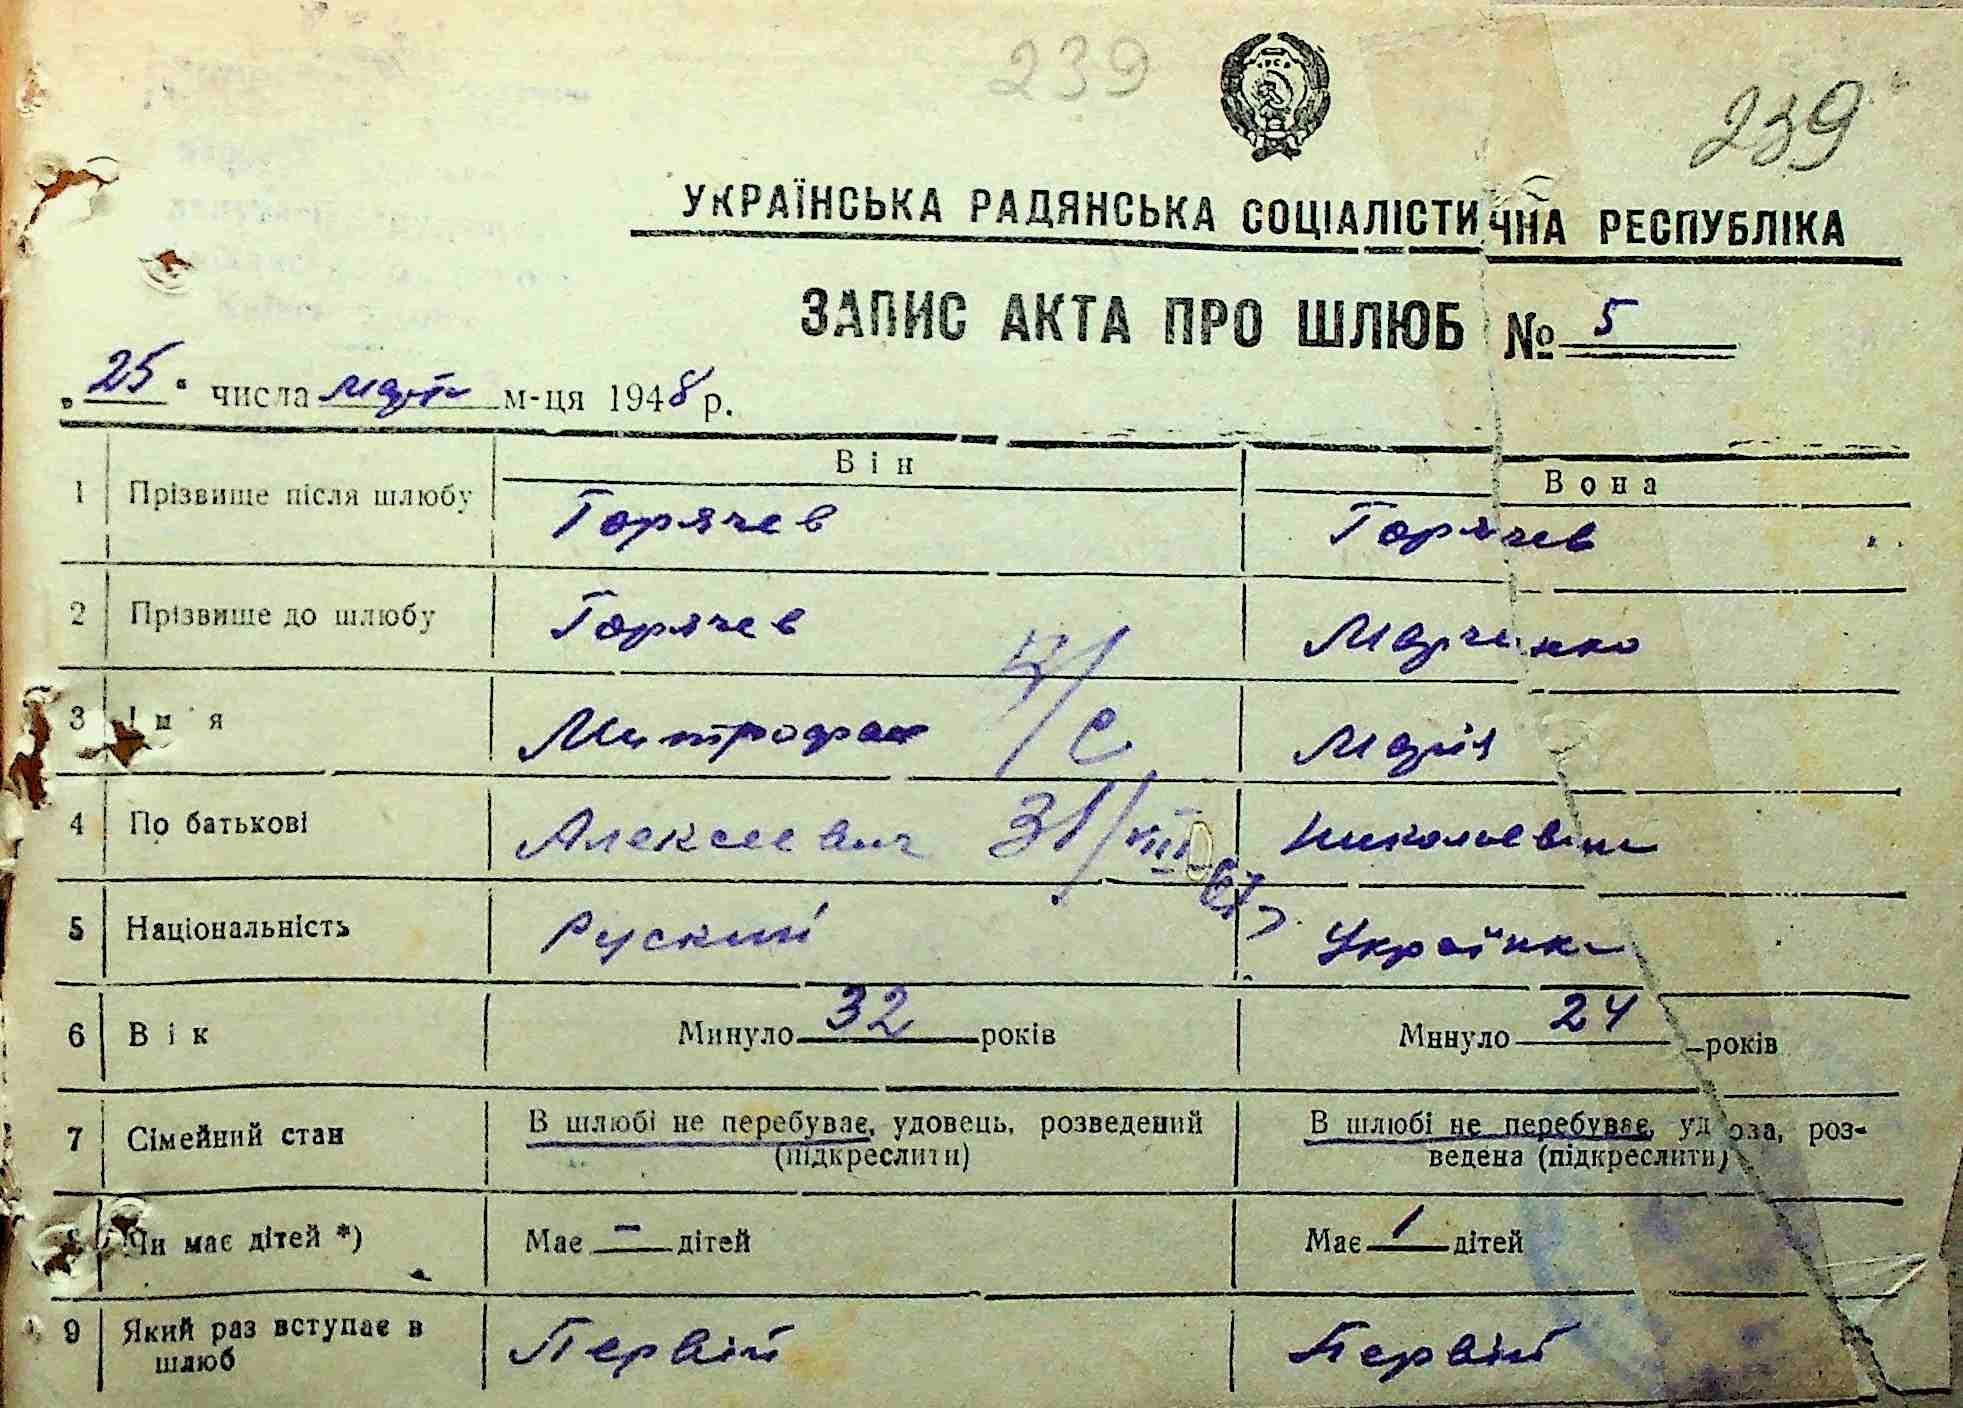 239 239
УКРАЇНСЬКА РАДЯНСЬКА СОЦІАЛІСТИЧНА РЕСПУБЛІКА
ЗАПИС АКТА ПРО ШЛЮБ № 5
„25“ числа март м-ця 1948 р.
Він Вона
1 Прізвище після шлюбу Горячев Горячев
2 Прізвище до шлюбу Горячев Марченко
3 Ім'я Митрофан Марія
4 По батькові Алексеевич 31/VIII Николаевна
5 Національність Руский Українка
6 Вік Минуло 32 років Минуло 24 років
7 Сімейний стан В шлюбі не перебуває, удовець, розведений В шлюбі не перебуває, удова, роз-
(підкреслити) ведена (підкреслити)
8 Чи має дітей *) Має – дітей Має 1 дітей
9 Який раз вступає в Первій Первій
шлюб